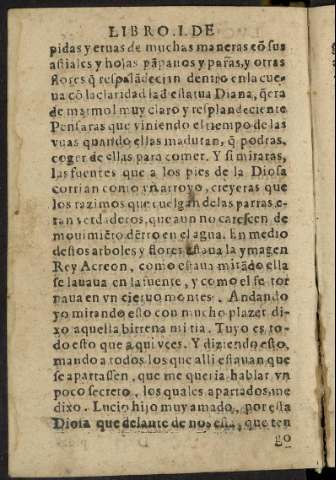 LIBRO. I. DE
pidas y eruas de muchas maneras cõ sus
astiales y hojas pãpanos y parras, y otras
flores q̃ resplãdeciẽn dentro en la cue
ua cõ la claridad la d estatua Diana, q̃ era
de marmol muy claro y resplandeciente.
Pensaras que viniendo el tiempo de las
vuas quando ellas maduran, q̃ podras,
coger de ellas para comer. Y si miraras,
las fuentes que a los pies de la Diosa
corrian como vñ arroyo, creyeras que
los razimos que cuelgan de las parras, e-
ran verdaderos, que aun no carescen de
mouimiẽto dẽtro en el agua. En medio
destos arboles y flores estaua la ymagen
Rey Acteon, como estaua mirãdo ella
se lauaua en la fuente, y como el se tor
naua en vn cieruo montes. Andando
yo mirando esto con mucho plazer di-
xo aquella birrena mi tia. Tuyo es to-
do esto que aqui vees. Y diziendo esto,
mando a todos los que alli estauan que
se apartassen, que me queria hablar vn
poco secreto, los quales apartados, me
dixo. Lucio hijo muy amado, por esta
Diosa que delante de nos està, que ten
go